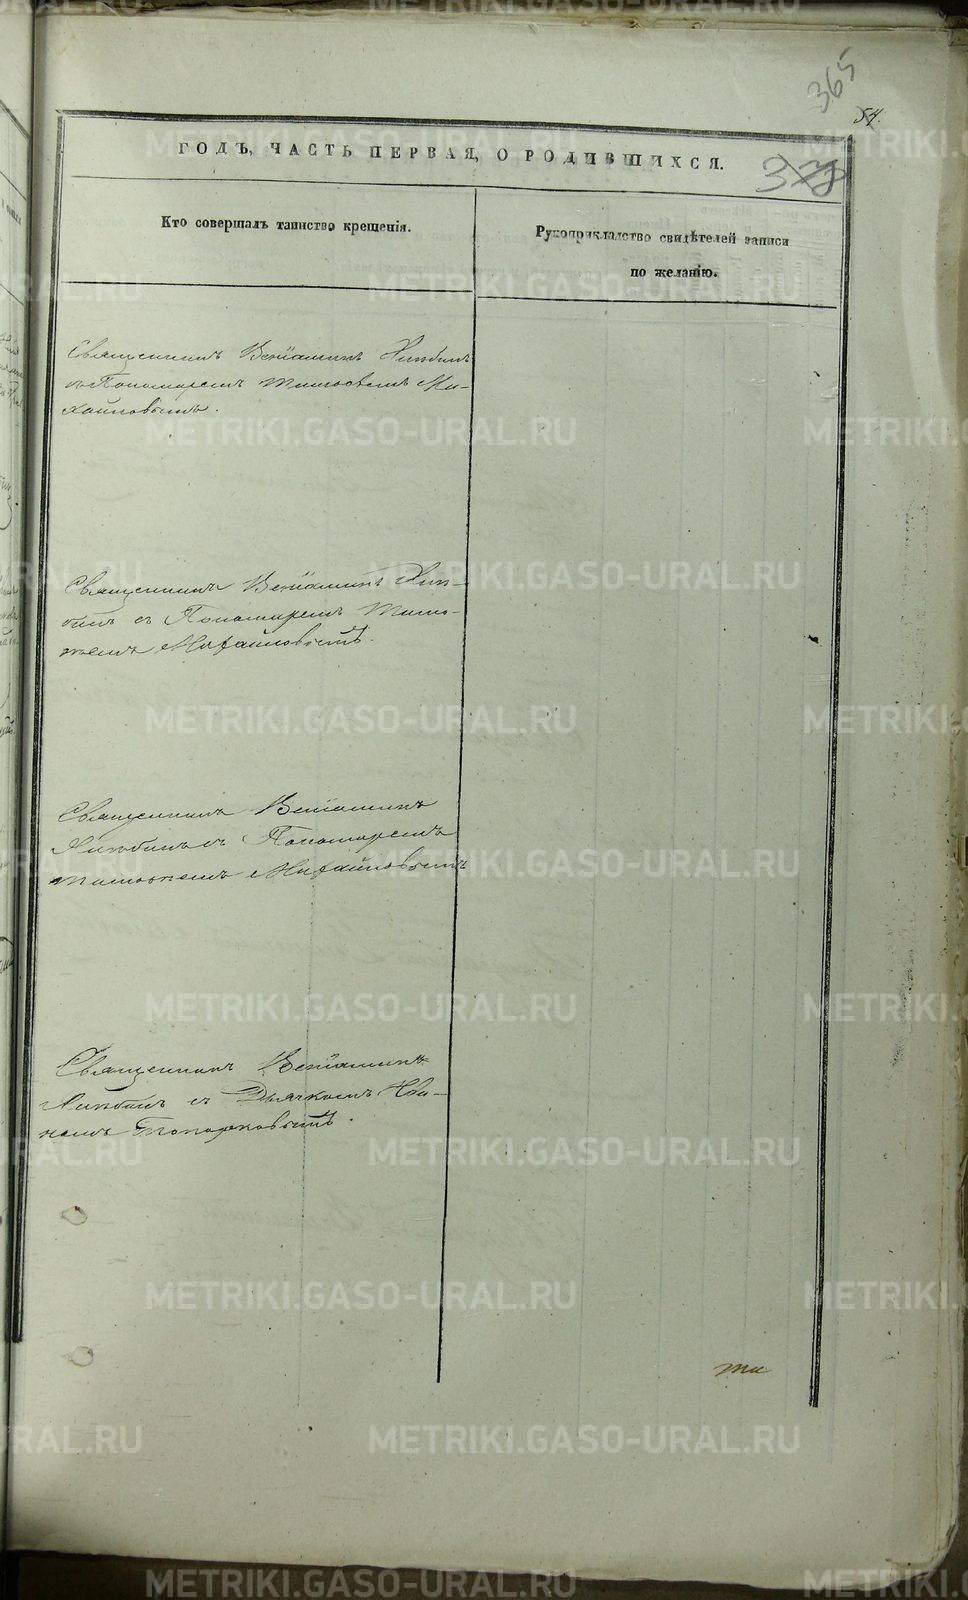 365
54.
ГОДЪ, ЧАСТЬ ПЕРВАЯ, О РОДИВШИХСЯ.
378
Кто совершалъ таинство крещенія.
Рукоприкладство свидѣтелей записи
по желанію.
Священникъ Веніаминъ
съ Пономаремъ Тимофеемъ Ми-
хайловымъ.
Священникъ Веніаминъ
съ Пономаремъ Тимо-
феемъ Михайловымъ.
Священникъ Веніаминъ
съ Пономаремъ
Тимофеемъ Михайловымъ
Священникъ Веніаминъ
съ Дьячкомъ Ива-
номъ Топорковымъ.
METRIKI.GASO-URAL.RU